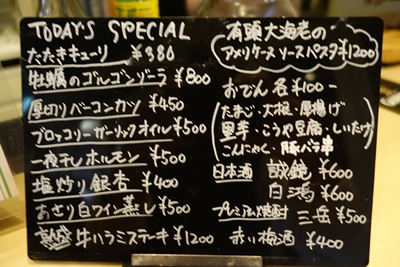 TODAY'S SPECIAL
たたきキューリ ¥380
牡蠣のゴルゴンゾーラ ¥800
厚切りベーコンカツ ¥450
ブロッコリーガーリックオイル ¥500
一夜干しホルモン ¥500
塩炒り銀杏 ¥400
あさり白ワイン蒸し ¥500
熟成 牛ハラミステーキ ¥1200
有頭大海老の
アメリケーヌソースパスタ ¥1200
おでん 各¥100ー
(たまご・大根・厚揚げ
里芋・こうや豆腐・しいたけ
こんにゃく・豚バラ串)
日本酒 誠鏡 ¥600
白鴻 ¥600
プレミアム焼酎 三岳 ¥500
赤い梅酒 ¥400